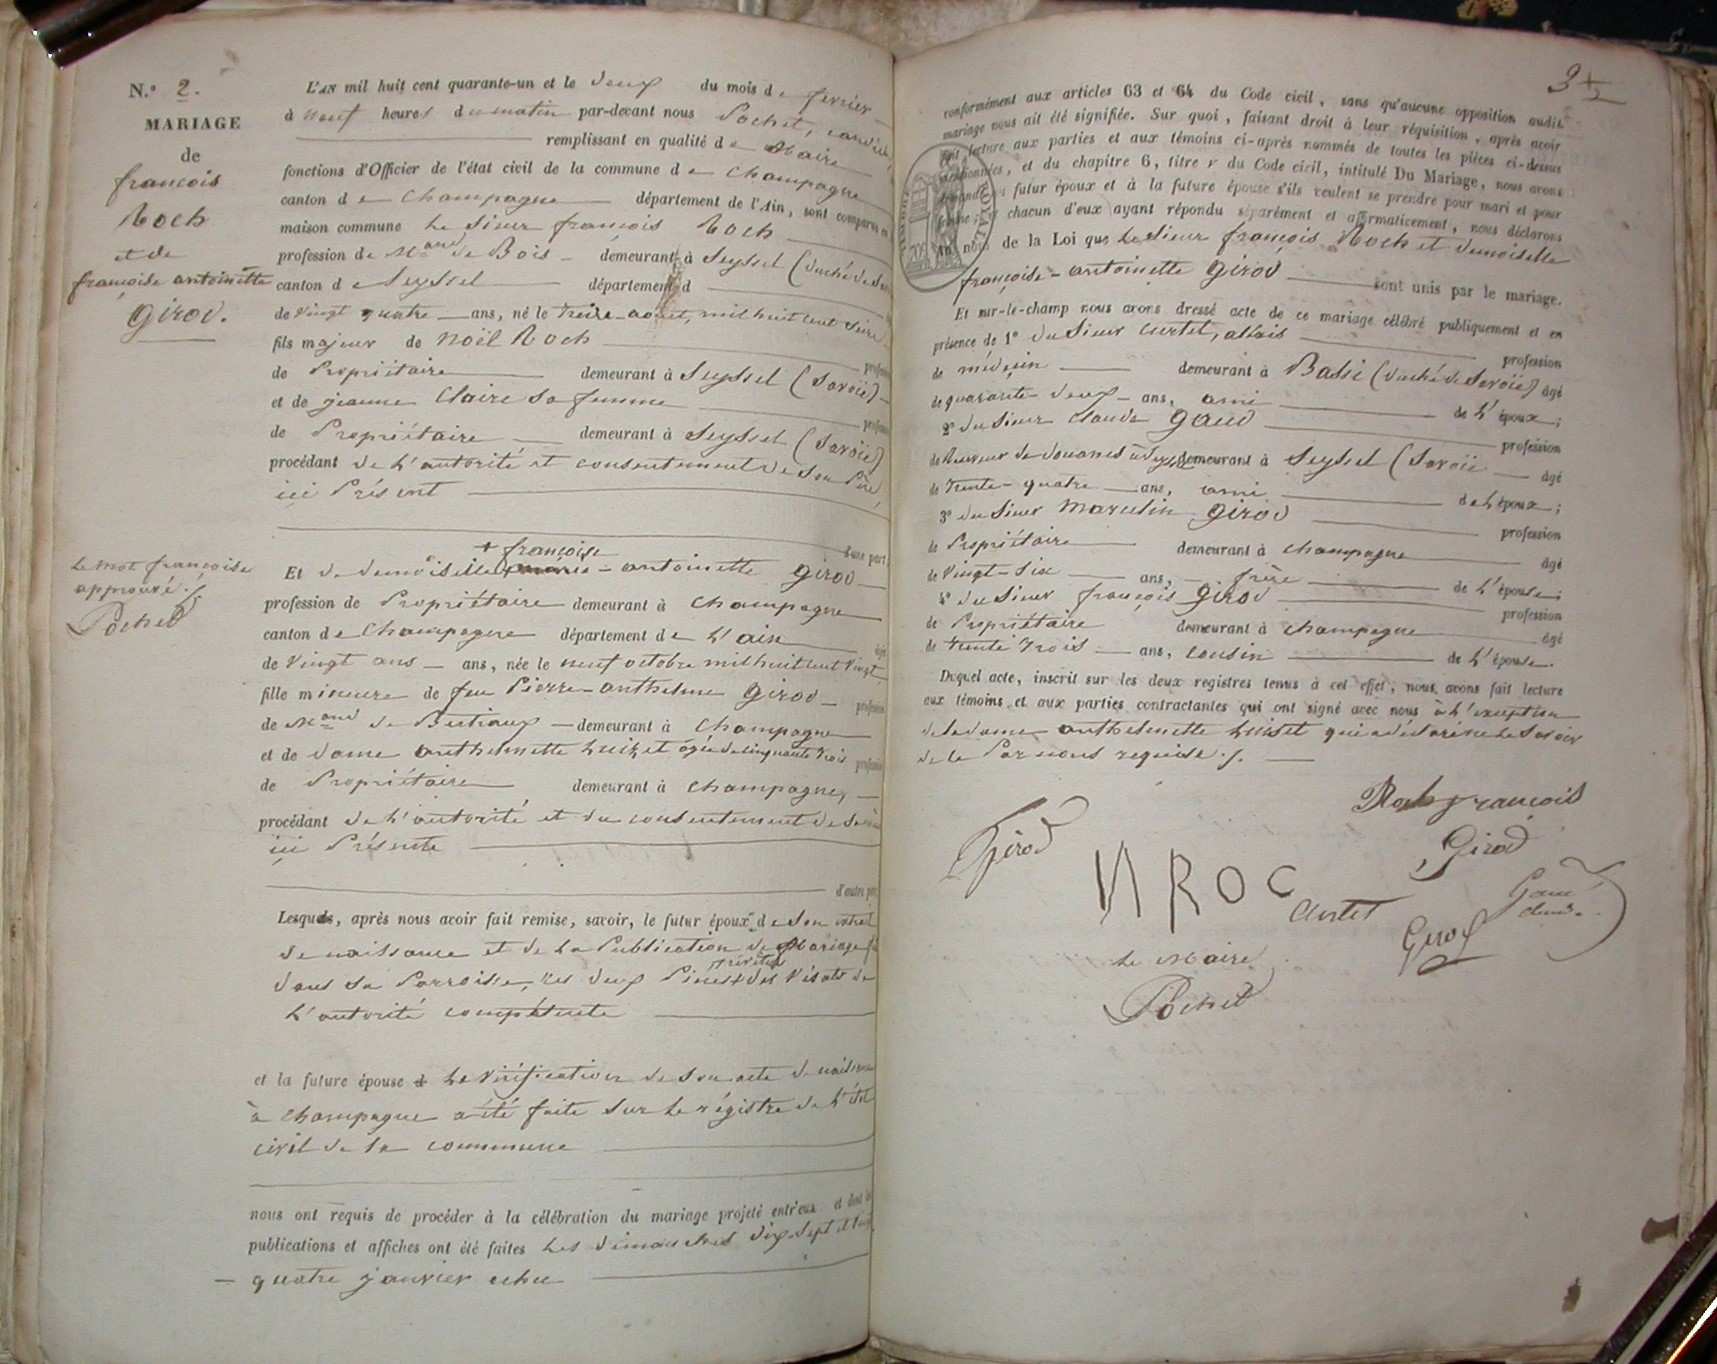 N.º 2.
MARIAGE
de
françois
Roch
et de
françoise antoinette
Girod.
Le mot françoise
approuvé ./.
Pochet
L'AN mil huit cent quarante-un et le deux du mois de fevrier
à neuf heures du matin par-devant nous Pochet,
remplissant en qualité de Maire
fonctions d'Officier de l'état civil de la commune de Champagne
canton de Champagne département de l'Ain, sont comparus en
maison commune le Sieur françois Roch
profession de Mand de Bois demeurant à Seyssel (duché de
canton de Seyssel département d
de vingt quatre ans, né le treize aout, mil huit cent seize
fils majeur de Noël Roch
profession
de Propriétaire demeurant à Seyssel (Savoïe)
et de jeanne Claire sa femme
profession
de Propriétaire demeurant à Seyssel (Savoïe)
procédant de l'autorité et consentement de son Père,
ici Présent
d'une part
+ françoise
Et de demoiselle marie - antoinette Girod
profession de Propriétaire demeurant à Champagne
canton de Champagne département de l'ain
de vingt ans ans, née le neuf octobre mil huit cent vingt
fille mineure de feu Pierre-anthelme Girod
de Mand de Bestiaux demeurant à Champagne
et de dame anthelmette huizet agée de cinquante trois
de Propriétaire demeurant à Champagne,
procédant de l'autorité et du consentement de sa
ici Présente
d'autre part
Lesquels, après nous avoir fait remise, savoir, le futur époux de son extrait
de naissance et de la Publication de Mariage
dans sa Parroisse, les deux Pièces revêtues des Visats de
l'autorité compétente
et la future épouse la Vérification de son acte de naissance
à Champagne a été faite sur le régistre de l'état
civil de la commune
nous ont requis de procéder à la célébration du mariage projeté entr'eux et dont les
publications et affiches ont été faites les dimanches dix-sept et vingt
quatre janvier echu
3
conformément aux articles 63 et 64 du Code civil, sans qu'aucune opposition audit
mariage nous ait été signifiée. Sur quoi, faisant droit à leur réquisition, après avoir
fait lecture aux parties et aux témoins ci-après nommés de toutes les pièces ci-dessus
mentionnées, et du chapitre 6, titre v du Code civil, intitulé Du Mariage, nous avons
demandé au futur époux et à la future épouse s'ils veulent se prendre pour mari et pour
femme; et chacun d'eux ayant répondu séparément et affirmativement, nous déclarons
au nom de la Loi que le Sieur françois Roch et demoiselle
françoise - antoinette Girod sont unis par le mariage.
Et sur-le-champ nous avons dressé acte de ce mariage célébré publiquement et en
présence de 1º du Sieur Curtet, alexis
profession
de médeçin demeurant à Bassi (duché de Savoïe) âgé
de quarante-deux ans, ami de l'époux;
2º du Sieur Claude Gaud
profession
de Receveur de douanes à Seyssel demeurant à Seyssel (Savoïe
âgé
de trente-quatre ans, ami de l'époux;
3º du Sieur Marcelin Girod
profession
de Propriétaire demeurant à Champagne
âgé
de vingt-six ans, frère de l'épouse;
4º du Sieur françois Girod
profession
de Propriétaire demeurant à Champagne
âgé
de trente trois ans, cousin de l'épouse.
Duquel acte, inscrit sur les deux registres tenus à cet effet, nous avons fait lecture
aux témoins et aux parties contractantes qui ont signé avec nous à l'exception
de la dame anthelmette huizet qui a déclaré ne le savoir
de le Par nous requise ./.
Roch françois
Girod
Girod
N ROC
Curtet
Gaud
claude
Girod
Le Maire
Pochet
TIMBRE ROYAL